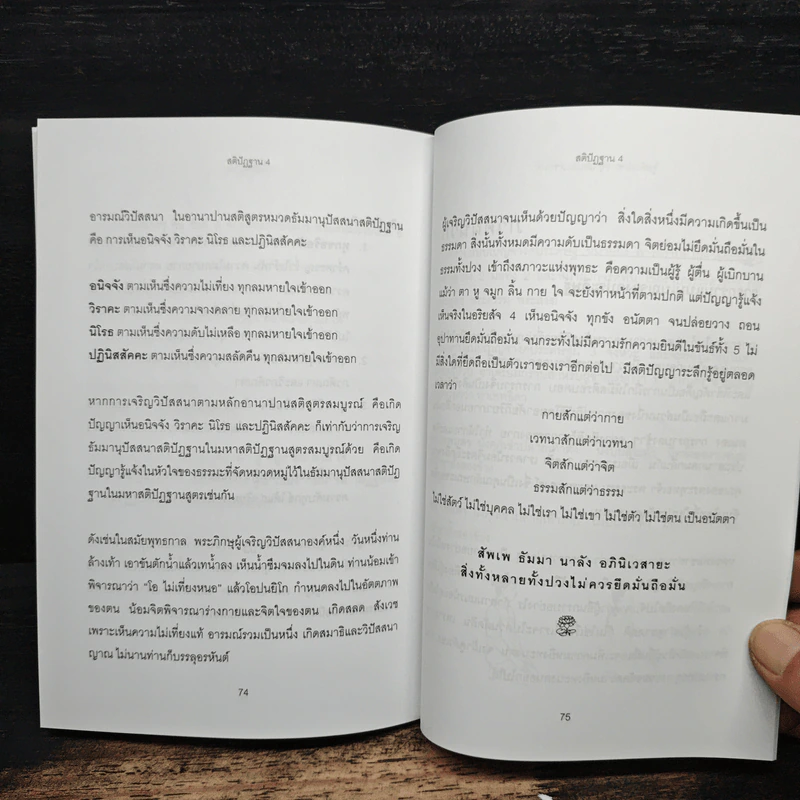 สติปัฏฐาน 4
อารมณ์วิปัสสนา ในอานาปานสติสูตรหมวดธัมมานุปัสสนาสติปัฏฐาน
คือ การเห็นอนิจจัง วิราคะ นิโรธ และปฏินิสสัคคะ
อนิจจัง ตามเห็นซึ่งความไม่เที่ยง ทุกลมหายใจเข้าออก
วิราคะ ตามเห็นซึ่งความจางคลาย ทุกลมหายใจเข้าออก
นิโรธ ตามเห็นซึ่งความดับไม่เหลือ ทุกลมหายใจเข้าออก
ปฏินิสสัคคะ ตามเห็นซึ่งความสลัดคืน ทุกลมหายใจเข้าออก
หากการเจริญวิปัสสนาตามหลักอานาปานสติสูตรสมบูรณ์ คือเกิด
ปัญญาเห็นอนิจจัง วิราคะ นิโรธ และปฏินิสสัคคะ ก็เท่ากับว่าการเจริญ
ธัมมานุปัสสนาสติปัฏฐานในมหาสติปัฏฐานสูตรสมบูรณ์ด้วย คือเกิด
ปัญญารู้แจ้งในหัวใจของธรรมะที่จัดหมวดหมู่ไว้ในธัมมานุปัสสนาสติปัฏ
ฐานในมหาสติปัฏฐานสูตรเช่นกัน
ดังเช่นในสมัยพุทธกาล พระภิกษุผู้เจริญวิปัสสนาองค์หนึ่ง วันหนึ่งท่าน
ล้างเท้า เอาขันตักน้ำแล้วเทน้ำลง เห็นน้ำซึมจมลงไปในดิน ท่านน้อมเข้า
พิจารณาว่า "โอ ไม่เที่ยงหนอ" แล้วโอปนยิโก กำหนดลงไปในอัตตภาพ
ของตน น้อมจิตพิจารณาร่างกายและจิตใจของตน เกิดสลด สังเวช
เพราะเห็นความไม่เที่ยงแท้ อารมณ์รวมเป็นหนึ่ง เกิดสมาธิและวิปัสสนา
ญาณ ไม่นานท่านก็บรรลุอรหันต์
74
สติปัฏฐาน 4
ผู้เจริญวิปัสสนาจนเห็นด้วยปัญญาว่า สิ่งใดสิ่งหนึ่งมีความเกิดขึ้นเป็น
ธรรมดา สิ่งนั้นทั้งหมดมีความดับเป็นธรรมดา จิตย่อมไม่ยึดมั่นถือมั่นใน
ธรรมทั้งปวง เข้าถึงสภาวะแห่งพุทธะ คือความเป็นผู้รู้ ผู้ตื่น ผู้เบิกบาน
แม้ว่า ตา หู จมูก ลิ้น กาย ใจ จะยังทำหน้าที่ตามปกติ แต่ปัญญารู้แจ้ง
เห็นจริงในอริยสัจ 4 เห็นอนิจจัง ทุกขัง อนัตตา จนปล่อยวาง ถอน
อุปาทานยึดมั่นถือมั่น จนกระทั่งไม่มีความรักความยินดีในขันธ์ทั้ง 5 ไม่
มีสิ่งใดที่ยึดถือเป็นตัวเราของเราอีกต่อไป มีสติปัญญาระลึกรู้อยู่ตลอด
เวลาว่า
กายสักแต่ว่ากาย
เวทนาสักแต่ว่าเวทนา
จิตสักแต่ว่าจิต
ธรรมสักแต่ว่าธรรม
ไม่ใช่สัตว์ ไม่ใช่บุคคล ไม่ใช่เรา ไม่ใช่เขา ไม่ใช่ตัว ไม่ใช่ตน เป็นอนัตตา
สัพเพ ธัมมา นาลัง อภินิเวสายะ
สิ่งทั้งหลายทั้งปวงไม่ควรยึดมั่นถือมั่น
75